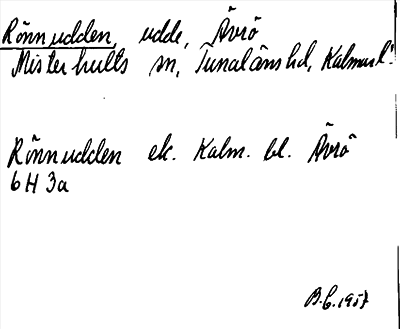 Rönnudden, udde, Ävrö
Misterhults sn, Tunaläns hd, Kalmar l.
Rönnudden ek. Kalm. bl. Ävrö
6H 3a
B.C. 1957